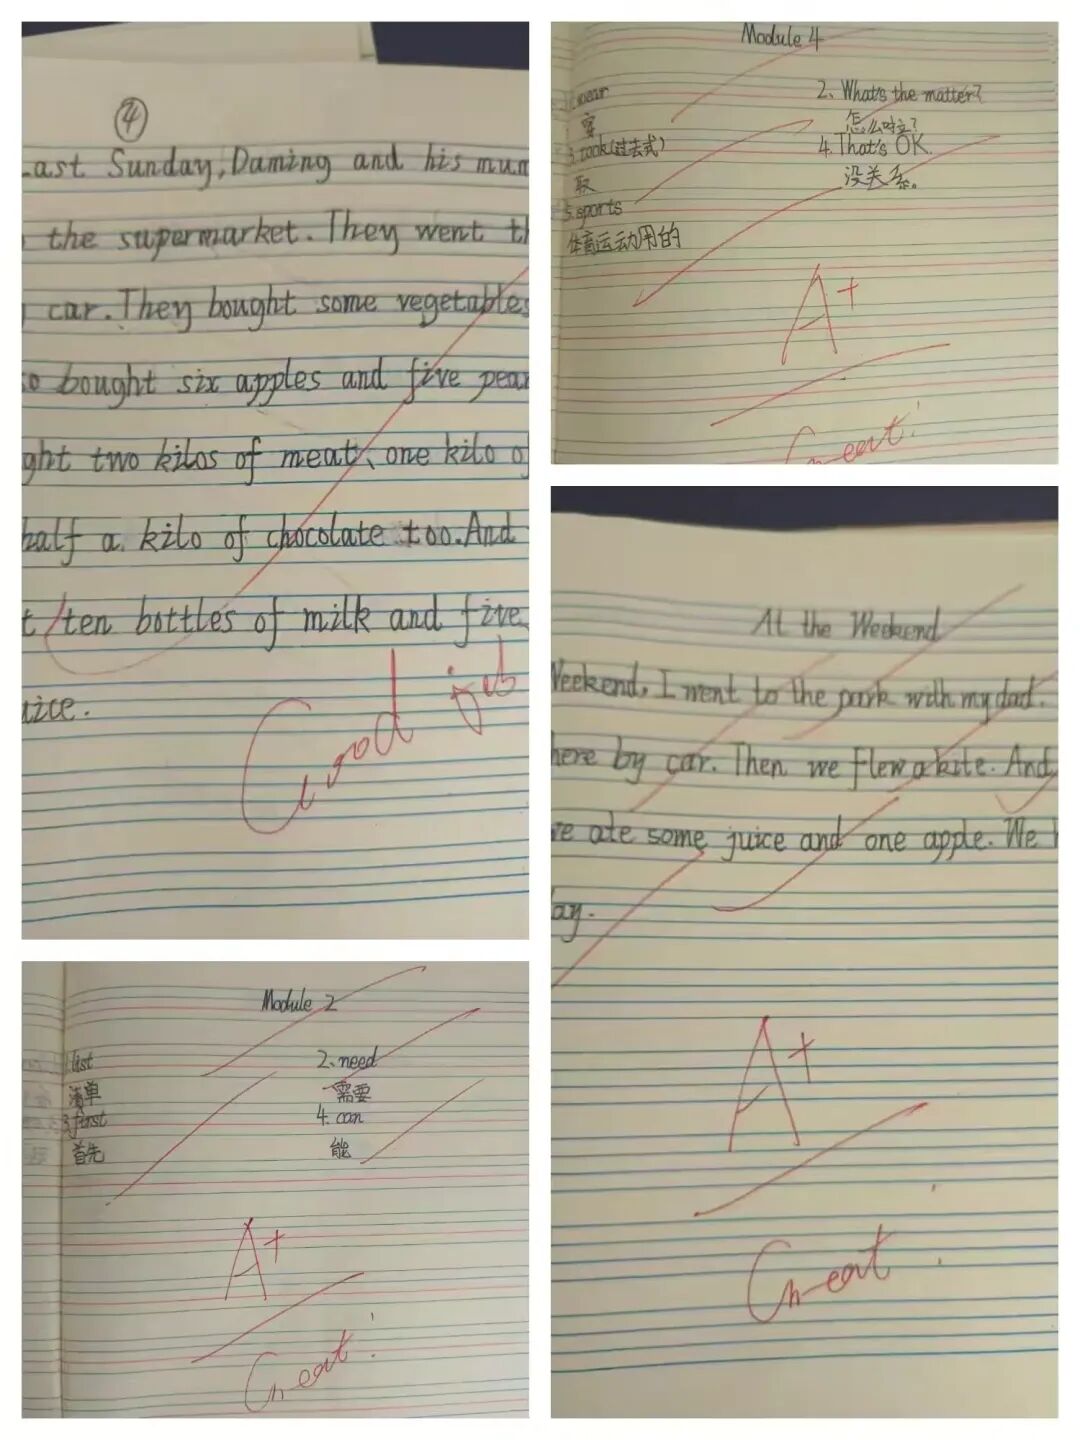 ④
Last Sunday, Daming and his mum
the supermarket. They went th
car. They bought some vegetables
so bought six apples and five pear
ght two kilos of meat、one kilo of
half a kilo of chocolate too. And
t ten bottles of milk and five
uice.
Good job
Module 4
1.wear
2、What's the matter?
穿
怎么啦?
3.took(过去式)
4.That's OK.
取
没关系。
5.sports
体育运动用的
A+
Great!
At the Weekend
Weekend, I went to the park with my dad.
here by car. Then we flew a kite. And
we ate some juice and one apple. We h
ay.
A+
Great!
Module 2
list
2、need
清单
需要
3.first
4.can
首先
能
A+
Great!